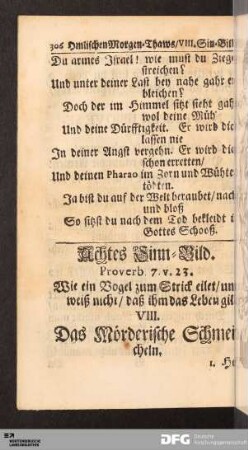 306 Himlischen Morgen-Thaws/VIII. Sin-Bil
Du armes Jsrael! wie must du Ziege
streichen?
Und unter deiner Last bey nahe gahr er
bleichen?
Doch der im Himmel sitzt sieht gah
wol deine Müh'
Und deine Dürfftigkeit. Er wird die
lassen nie
Jn deiner Angst vergehn. Er wird di
schon erretten/
Und deinen Pharao im Zorn und Wühte
tödten.
Ja bist du auf der Welt beraubet/nack
und bloß
So sitzst du nach dem Tod bekleidt i
Gottes Schooß.
Achtes Sinn-Bild.
Proverb. 7. v. 23.
Wie ein Vogel zum Strick eilet/un
weiß nicht/daß ihm das Leben gil
VIII.
Das Mörderische Schmei
cheln.
1. He
DFG
Deutsche
Forschungsgemeinschaft